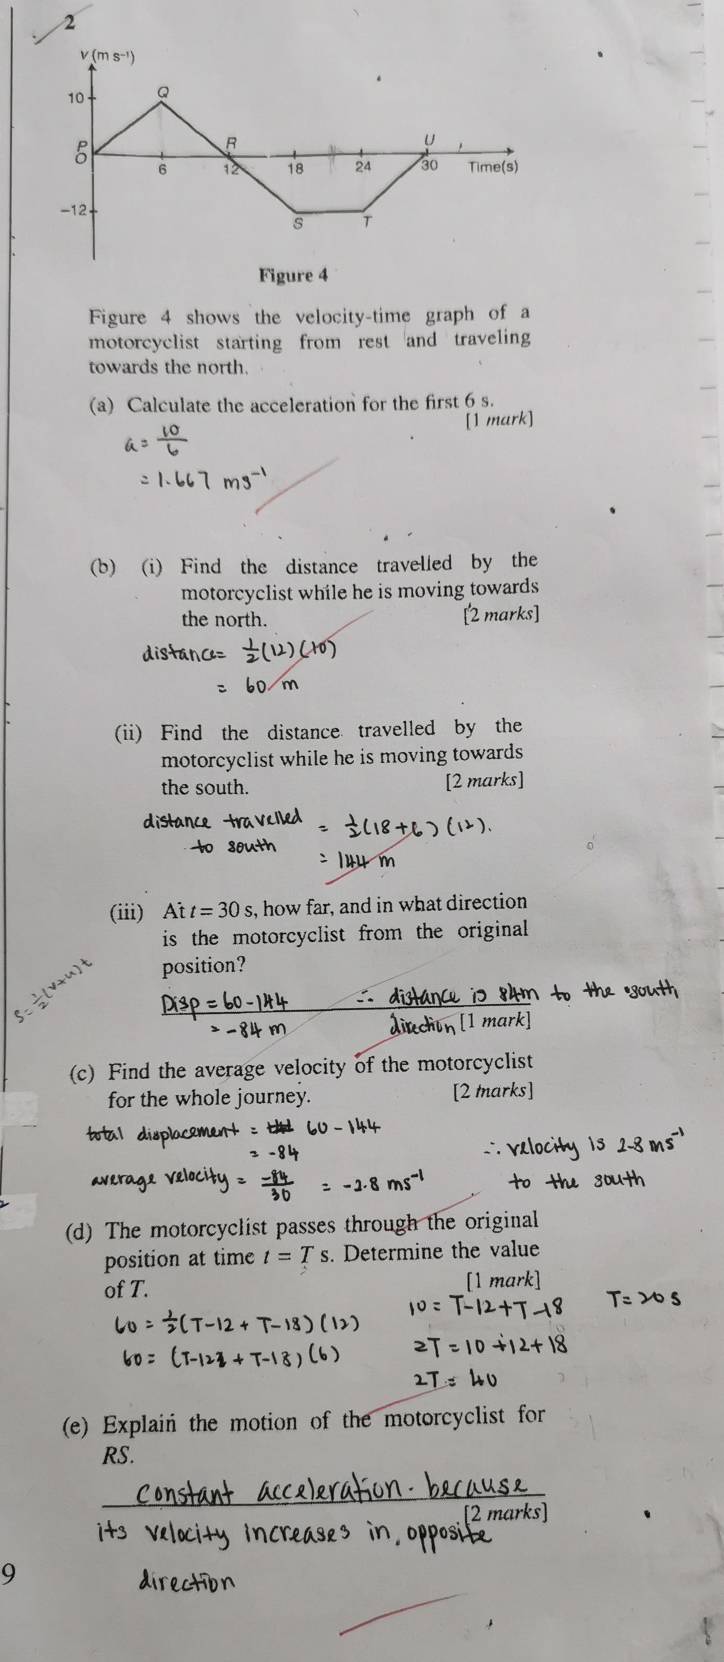 2
v (m s⁻¹)
10
Q
P
O
R
U
6
12
18
24
30
Time(s)
−12
S
T
Figure 4
Figure 4 shows the velocity-time graph of a
motorcyclist starting from rest and traveling
towards the north.
(a) Calculate the acceleration for the first 6 s.
[1 mark]
a = 10/6
= 1.667 ms⁻¹
(b) (i) Find the distance travelled by the
motorcyclist while he is moving towards
the north.
[2 marks]
distance = ½(12)(10)
= 60 m
(ii) Find the distance travelled by the
motorcyclist while he is moving towards
the south.
[2 marks]
distance travelled = ½(18+6)(12).
to south
= 144 m
(iii) At t = 30 s, how far, and in what direction
is the motorcyclist from the original
position?
s = ½(v+u)t
Disp = 60 - 144 ∴ distance is 84m to the south
= -84 m direction [1 mark]
(c) Find the average velocity of the motorcyclist
for the whole journey.
[2 marks]
total displacement = 60 - 144
= -84
∴ velocity is 2.8 ms⁻¹
average velocity = -84/30 = -2.8 ms⁻¹
to the south
(d) The motorcyclist passes through the original
position at time t = T s. Determine the value
of T.
[1 mark]
60 = ½(T-12 + T-18)(12)
60 = (T-12 + T-18)(6)
10 = T-12+T-18
2T = 10+12+18
2T = 40
T = 20 s
(e) Explain the motion of the motorcyclist for
RS.
constant acceleration. because
[2 marks]
its velocity increases in opposite
direction
9